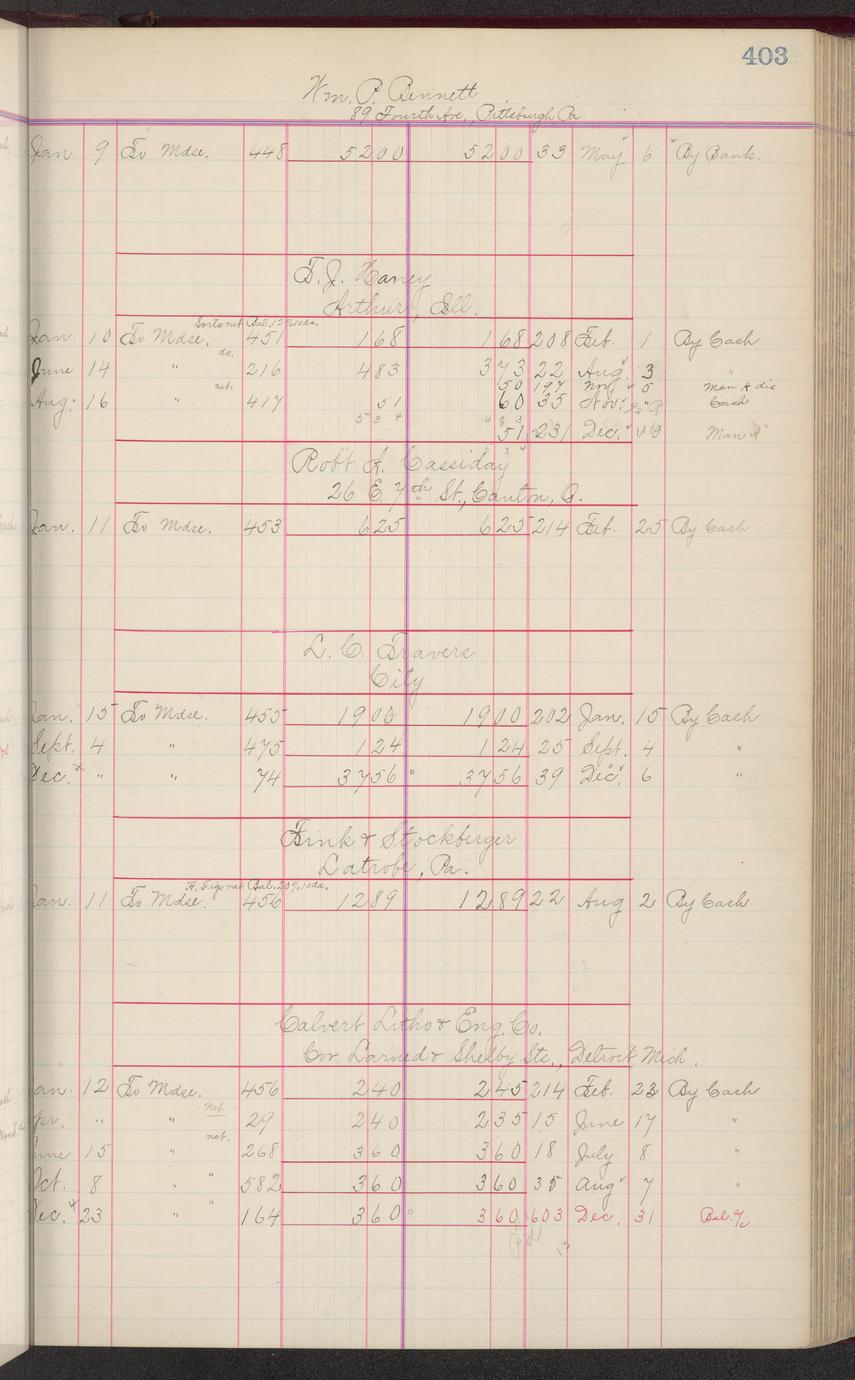 403
Wm. P. Bennett
89 Fourth Ave., Pittsburgh, Pa.
Jan. 9 To Mdse. 448 5200 5200 33 May 6 By Bank.
T. J. Haney
Arthur, Ill.
Sorto net Bal. 12% 10 da.
Jan. 10 To Mdse. 451 168 168 208 Feb. 1 By Cash
do.
June 14 " 216 483 373 22 Aug. 3 "
50 197 Nov. 5 Man & dis
net.
Aug. 16 " 417 51 60 35 Nov. Cash
534 483
51 231 Dec. 19 Man
534
Rob't A. Cassiday
26 E. 7th St., Canton, O.
Jan. 11 To Mdse. 453 625 625 214 Feb. 25 By Cash
L. C. Travers
City
Jan. 15 To Mdse. 455 1900 1900 202 Jan. 15 By Cash
Sept. 4 " 475 124 124 25 Sept. 4 "
Dec. " " 74 3756 3756 39 Dec. 6 "
Fink & Stockberger
Latrobe, Pa.
net Bal. 20% 10 da.
Jan. 11 To Mdse. 456 1289 1289 22 Aug 2 By Cash
Calvert Litho & Eng. Co.
Cor. Larned & Shelby Sts., Detroit Mich.
Jan. 12 To Mdse. 456 240 245 214 Feb. 23 By Cash
net.
Apr. " " 29 240 235 15 June 17 "
net.
June 15 " 268 360 360 18 July 8 "
Oct. 8 " " 582 360 360 35 Aug 7 "
Dec. 23 " " 164 360 360 603 Dec. 31 Bal. a/c